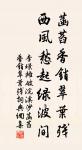 菡萏香銷翠葉殘
西風愁起綠波間
李璟攤破浣溪沙菡萏
香銷翠葉殘詞典詞集